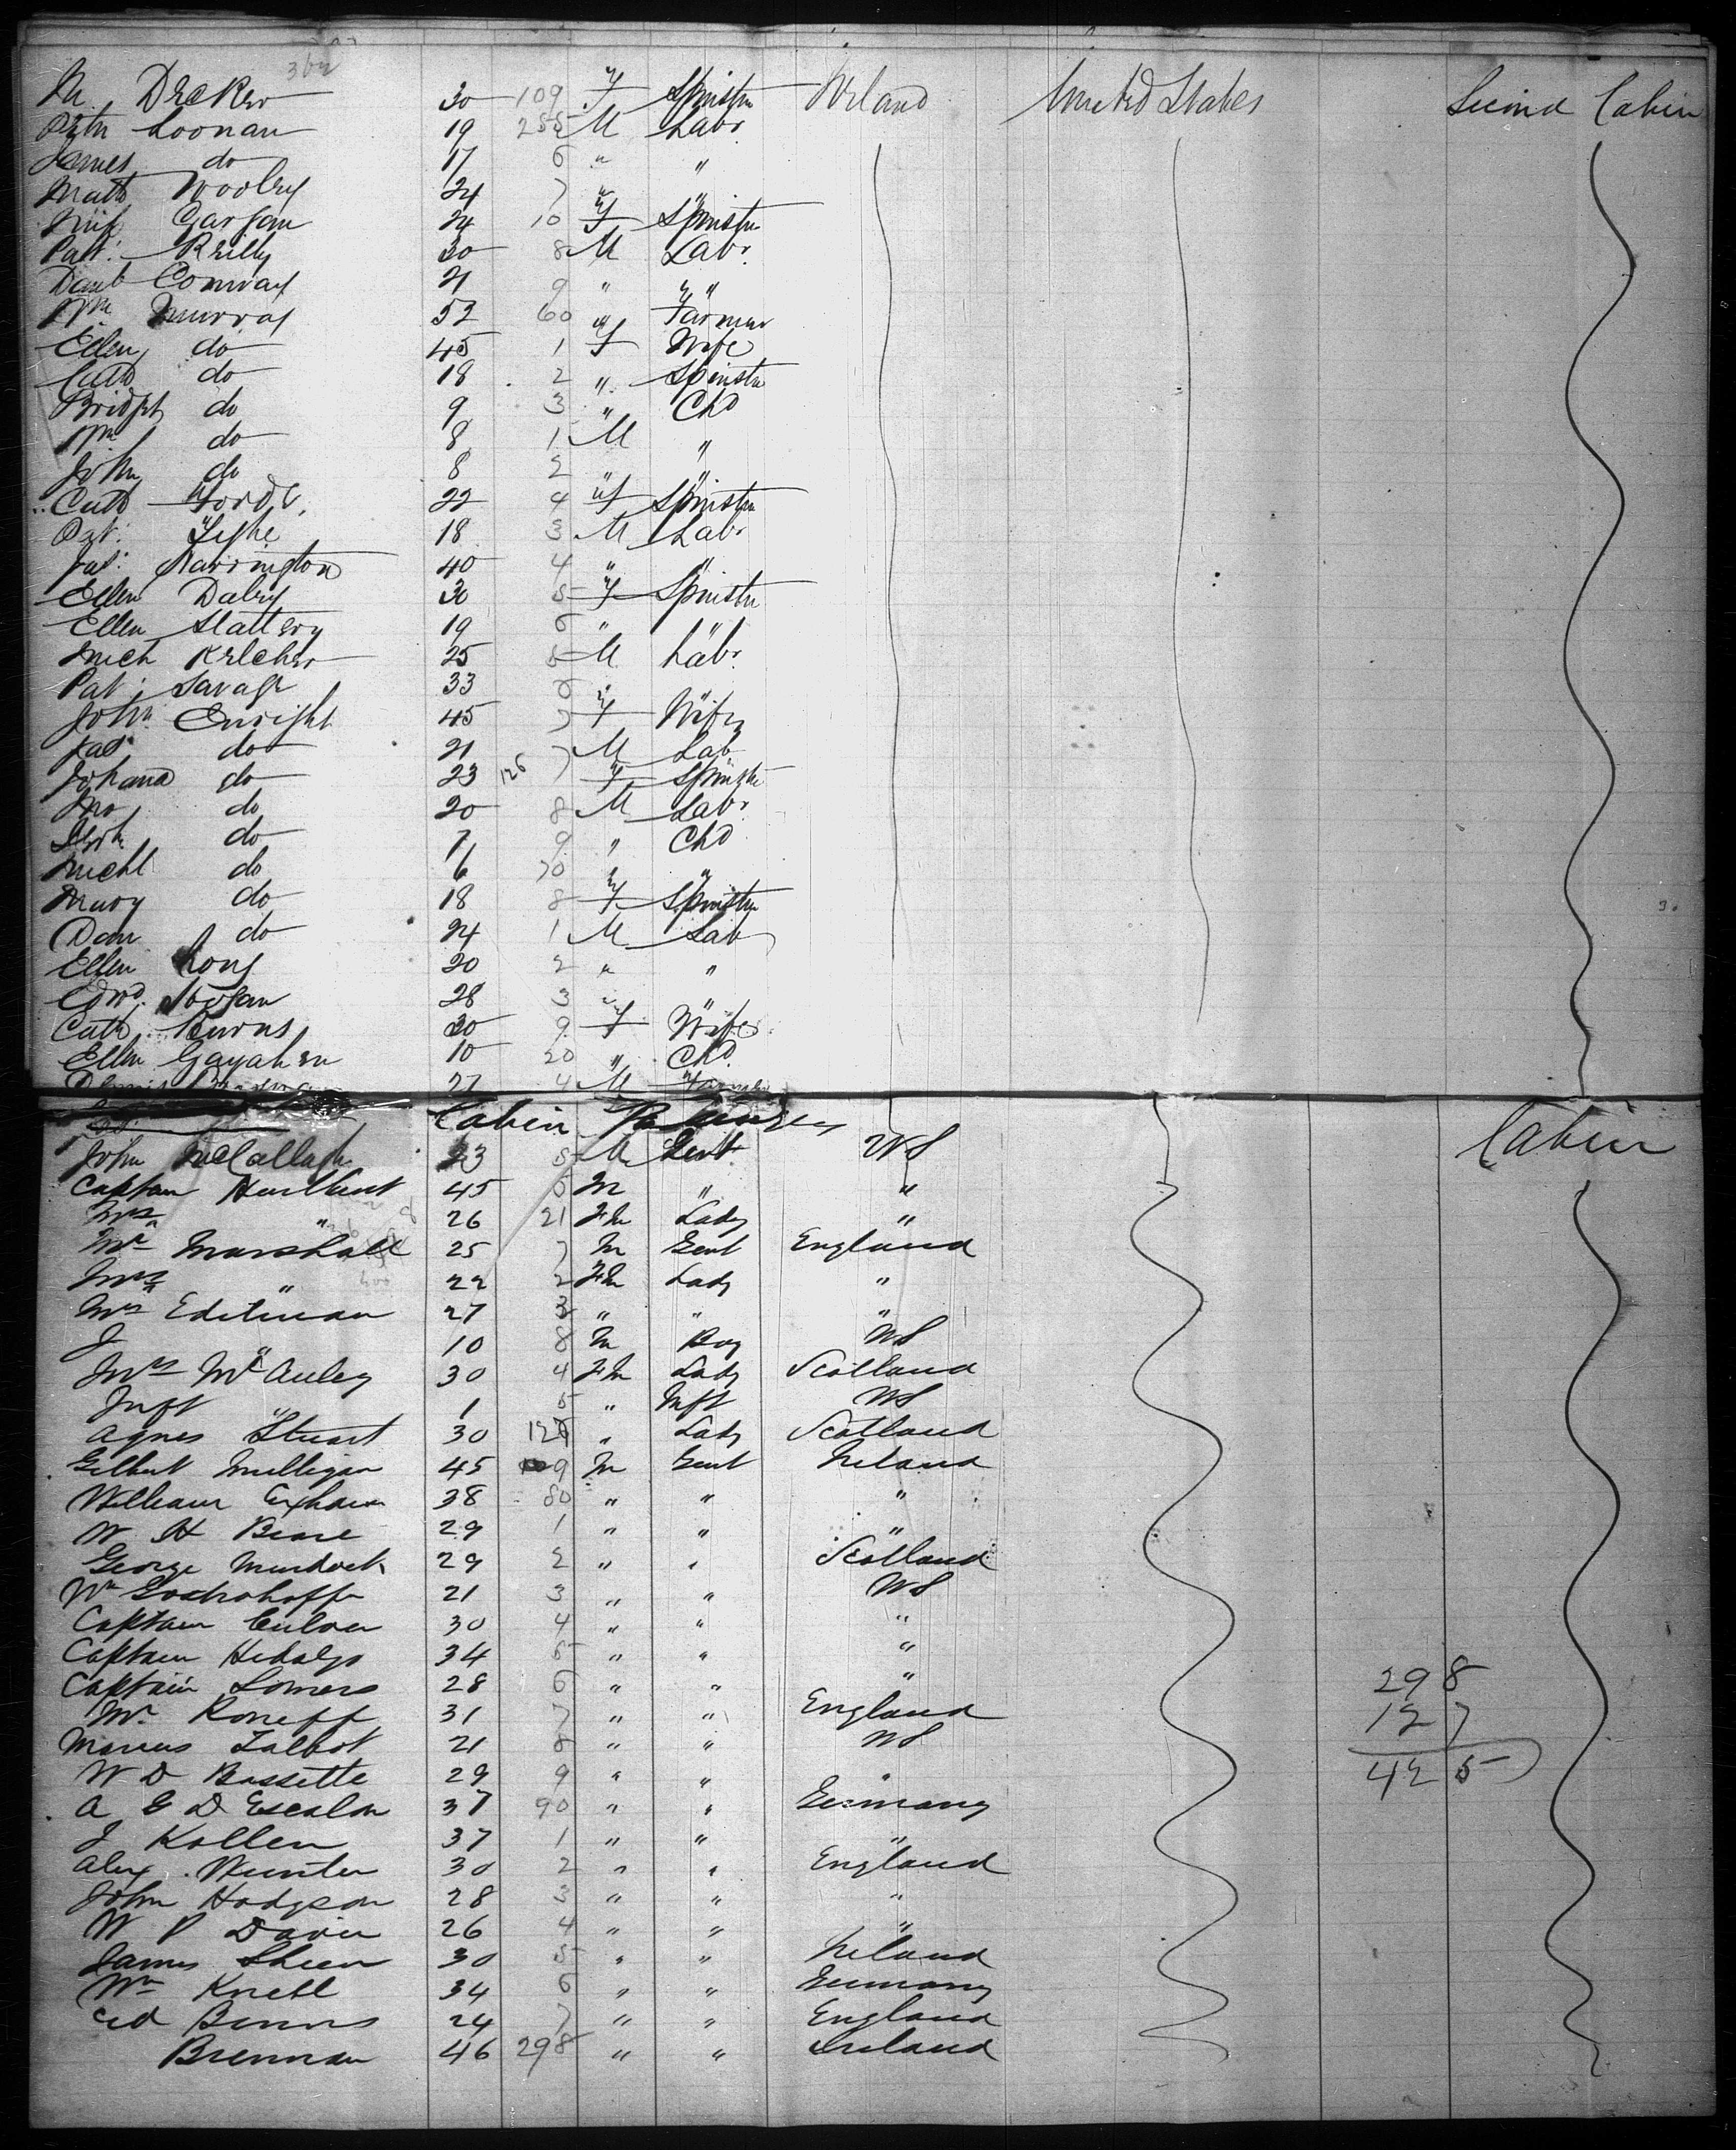 362
M. Decker 30 109 F Spinster Ireland United States Second Cabin
Noonan 19 255 M Labr
James do 17 6 " "
Math Wooley 24 7 " "
Gargan 24 10 F Spinster
Patt: Reilly 30 8 M Labr.
Danl Conway 21 9 " "
Wm Murray 52 60 " Farmer
Ellen do 45 1 F Wife
Cath do 18 2 " Spinster
Bridget do 9 3 " Chd
Wm do 8 1 M "
John do 8 2 " "
Cath Forde 22 4 F Spinster
Pat: Tighe 18 3 M Labr
Harrington 40 4 " "
Ellen Daley 30 5 F Spinster
Ellen Slattery 19 6 "
Mich Kelcher 25 5 M Labr.
Pat: Savage 33 6 "
John Enright 45 7 F Wife
do 21 7 M Lab
Johana do 23 126 7 F Spinster
Jno do 20 8 M Labr.
do 7 9 " Chd
Michl do 6 70 " "
Mary do 18 8 F Spinster
Dan do 24 1 M Lab
Ellen Long 20 2 " "
Edwd. Hogan 28 3 "
Cath Burns 30 9 F Wife
Ellen 10 20 " Chd.
27 4 M
Cabin Passengers
John McCallagh 23 5 M Gent US Cabin
Captain 45 6 M " "
Mrs " 26 21 Fm Lady "
Mr Marshall 25 7 M Gent England
Mrs " 22 2 Fm Lady "
Mrs Editman 27 3 " " "
J " 10 8 M Boy US
Mrs McAuley 30 4 Fm Lady Scotland
Inft " 1 5 " Inft US
Agnes Stuart 30 126 " Lady Scotland
Gilbert Milligan 45 9 M Gent Ireland
William 38 80 " " "
W H Beare 29 1 " " "
George Murdock 29 2 " " Scotland
Wm 21 3 " " US
Captain Culver 30 4 " " "
Captain Hidalgo 34 5 " " "
Captain Somers 28 6 " " "
Mr. Roneff 31 7 " " England
Marcus Talbot 21 8 " " US
W D Bassette 29 9 " " "
A E D Escalon 37 90 " " Germany
J Kollen 37 1 " " "
Alex. Wunter 30 2 " " England
John Hodgson 28 3 " " "
W P Davies 26 4 " " "
James Sheen 30 5 " " Ireland
Wm Knebl 34 6 " " Germany
Ed Binns 24 7 " " England
Brennan 46 298 " " Ireland
298
127
425